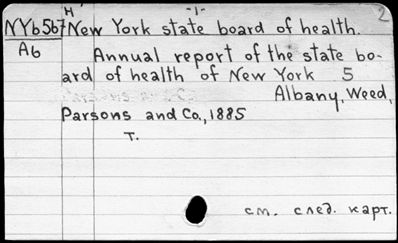 H -1- 2
NYb567 New York state board of health.
A6 Annual report of the state bo-
ard of health of New York 5
Albany, Weed,
Parsons and Co., 1885
T.
см. след. карт.